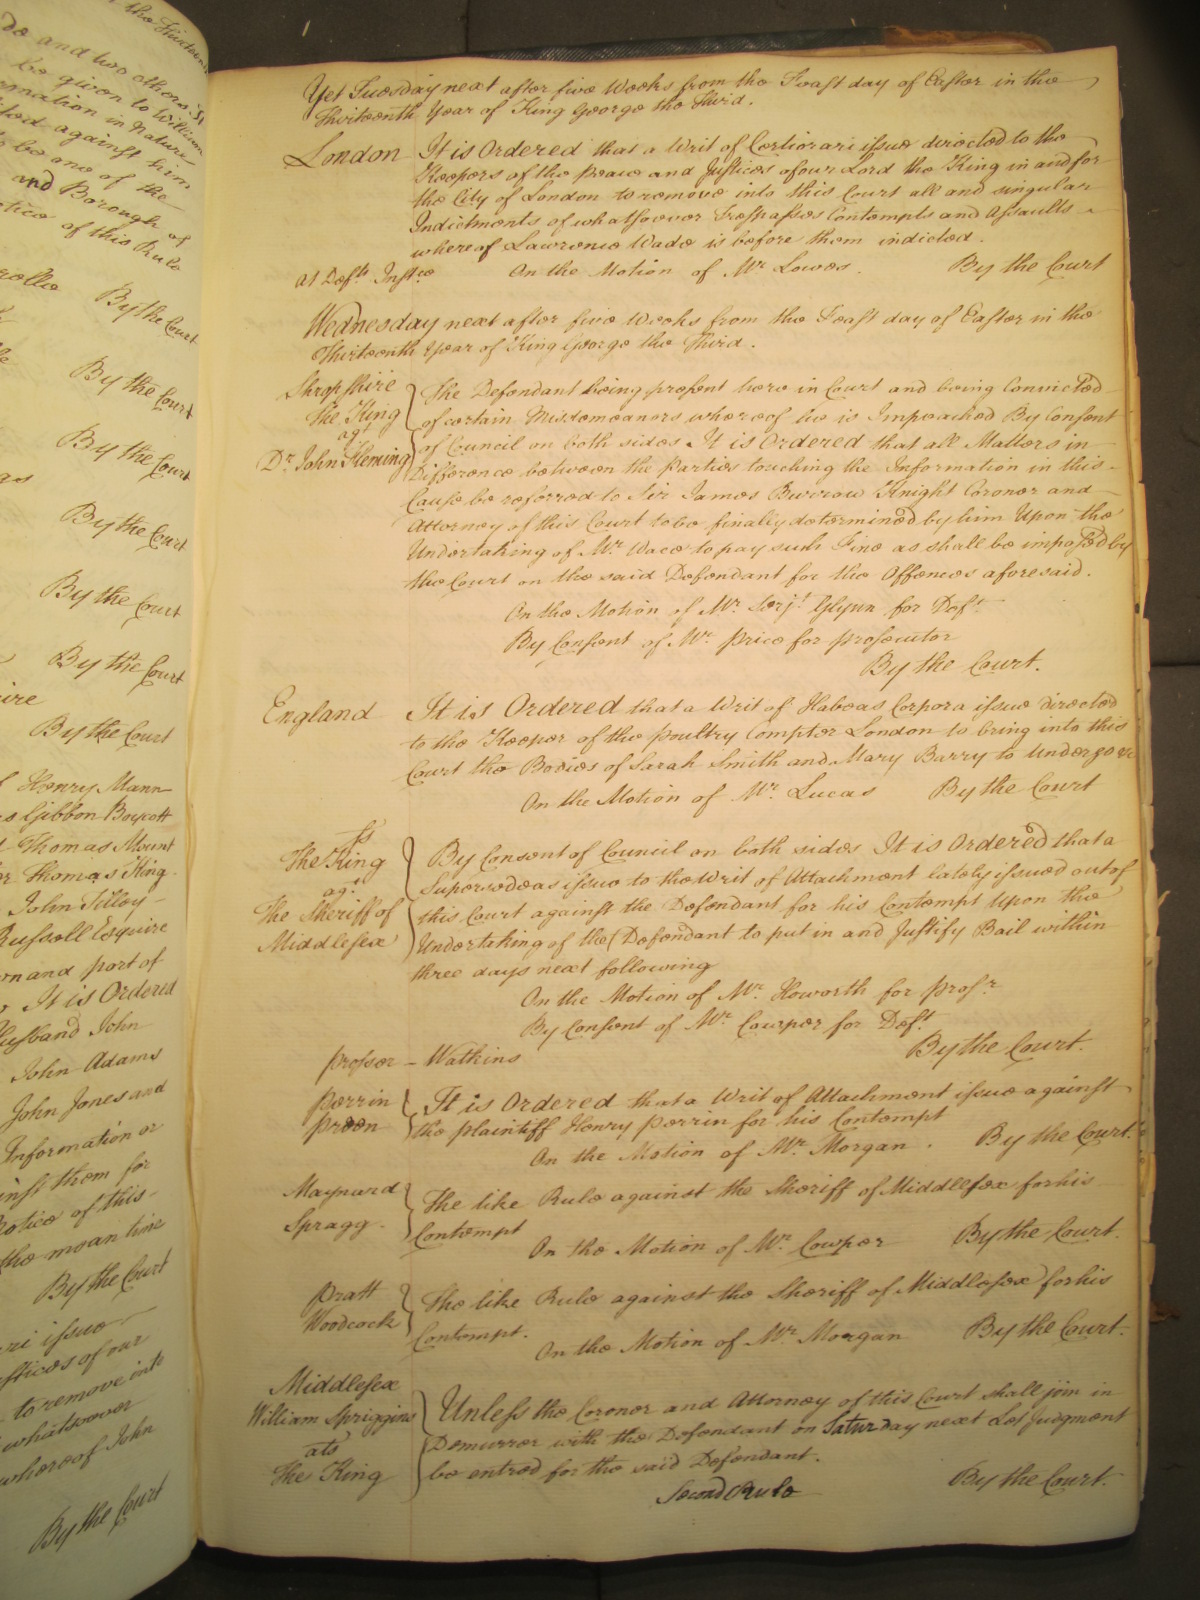 the Thirteenth
de and two others
be given to William
ormation in Nature
ited against him
to be one of the
and Borough of
otice of this Rule
rollie
By the Court
By the Court
By the Court
By the Court
By the Court
By the Court
ire
By the Court
f Henry Mann
s Gibbon Boycott
Thomas Mount
er Thomas King
John Tilley
Russell Esquire
orn and part of
It is Ordered
Husband John
John Adams
John Jones and
Information or
inst them for
Notice of this
the mean time
By the Court
ri issue
stices of our
to remove into
whatsoever
whereof John
By the Court
Yet Tuesday next after five Weeks from the Feast day of Easter in the
Thirteenth Year of King George the Third.
London It is Ordered that a Writ of Certiorari issue directed to the
Keepers of the peace and Justices of our Lord the King in and for
the City of London to remove into this Court all and singular
Indictments of whatsoever Trespasses Contempts and Assaults
whereof Lawrence Wade is before them indicted.
At Defts. Instce. On the Motion of Mr. Lowes. By the Court
Wednesday next after five Weeks from the Feast day of Easter in the
Thirteenth Year of King George the Third.
Shropshire
The King
agt
Dr. John Fleming
The Defendant being present here in Court and being Convicted
of certain Misdemeanors whereof he is Impeached By Consent
of Council on both sides It is Ordered that all Matters in
Difference between the parties touching the Information in this
Cause be referred to Sir James Burrow Knight Coroner and
Attorney of this Court to be finally determined by him Upon the
Undertaking of Mr. Wace to pay such Fine as shall be imposed by
the Court on the said Defendant for the Offences aforesaid.
On the Motion of Mr. Serjt. Glynn for Deft.
By Consent of Mr. Price for prosecutor
By the Court.
England It is Ordered that a Writ of Habeas Corpora issue directed
to the Keeper of the poultry Compter London to bring into this
Court the Bodies of Sarah Smith and Mary Barry to undergo &c
On the Motion of Mr. Lucas By the Court
ss
The King
agt
The Sheriff of
Middlesex
By Consent of Council on both sides It is Ordered that a
Supersedeas issue to the Writ of Attachment lately issued out of
this Court against the Defendant for his Contempt Upon the
Undertaking of the Defendant to put in and Justify Bail within
three days next following
On the Motion of Mr. Howorth for prosr.
By Consent of Mr. Cowper for Deft.
By the Court.
prosor – Watkins
Perrin
Preen
It is Ordered that a Writ of Attachment issue against
the plaintiff Henry Perrin for his Contempt
On the Motion of Mr. Morgan. By the Court.
Maynard
Spragg.
The like Rule against the Sheriff of Middlesex for his
Contempt
On the Motion of Mr. Cowper By the Court.
Pratt
Woodcock
The like Rule against the Sheriff of Middlesex for his
Contempt.
On the Motion of Mr. Morgan By the Court.
Middlesex
William Spriggins
ats
The King
Unless the Coroner and Attorney of this Court shall join in
Demurrer with the Defendant on Saturday next Let Judgment
be entred for the said Defendant.
Second Rule By the Court.